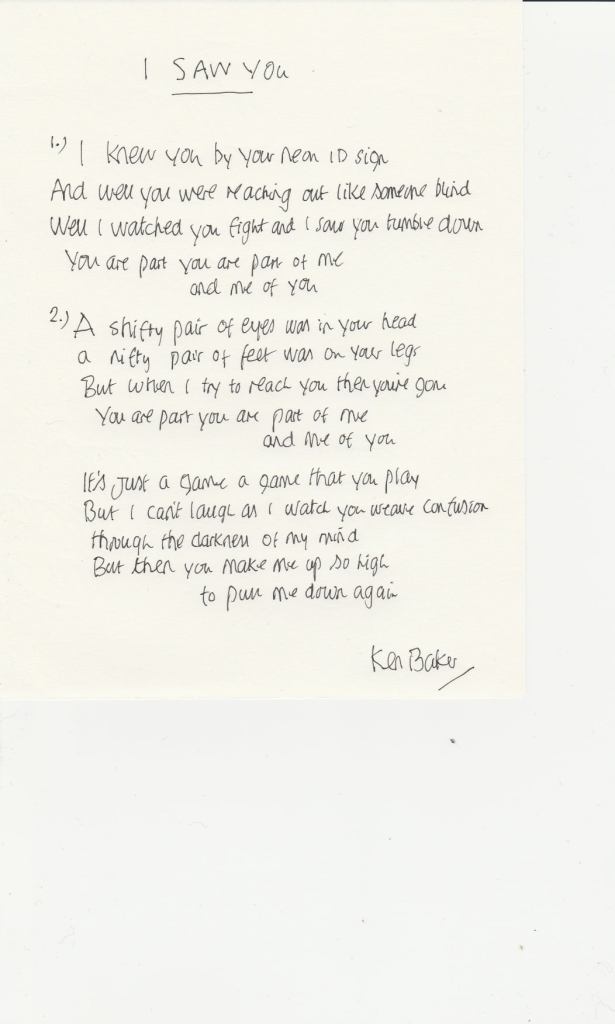 I SAW YOU
1.) I knew you by your neon ID sign
And well you were reaching out like someone blind
Well I watched you fight and I saw you tumble down
You are part you are part of me
and me of you
2.) A shifty pair of eyes was in your head
a nifty pair of feet was on your legs
But when I try to reach you then you're gone
You are part you are part of me
and me of you
It's just a game a game that you play
But I can't laugh as I watch you weave confusion
through the darkness of my mind
But then you make me up so high
to pull me down again
Ken Baker